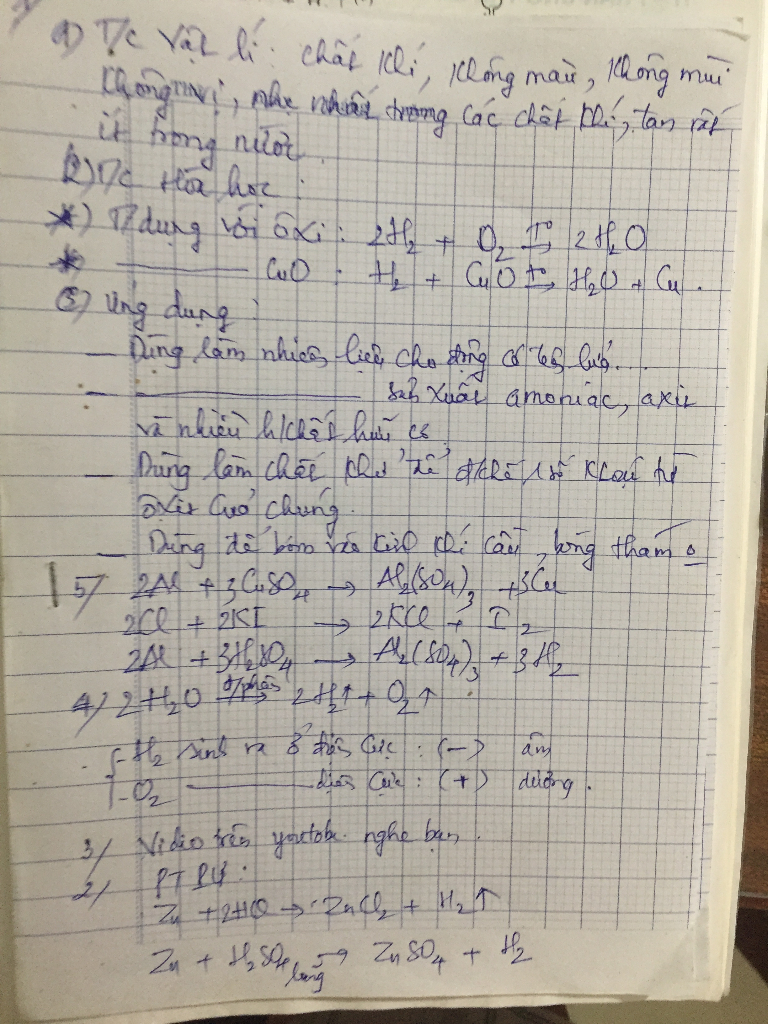 1) T/c vật lí : chất khí, không màu, không mùi
không vị, nhẹ nhất trong các chất khí, tan rất
ít trong nước.
2) T/c Hóa học :
*) T/dụng với ôxi : 2H₂ + O₂ ⇌ 2H₂O
*) ——— CuO : H₂ + CuO ⇌ H₂O + Cu .
3) Ứng dụng :
— Dùng làm nhiên liệu cho động cơ tên lửa...
— ——— sản xuất amoniac, axit
và nhiều h/chất hữu cơ
— Dùng làm chất khử để đ/chế 1 số kloại từ
ôxit của chúng.
— Dùng để bơm vào kinh khí cầu, bóng thám
5/ 2Al + 3CuSO₄ → Al₂(SO₄)₃ + 3Cu
2Cl + 2KI → 2KCl + I₂
2Al + 3H₂SO₄ → Al₂(SO₄)₃ + 3H₂
4/ 2H₂O đ/phân → 2H₂↑ + O₂↑ .
- H₂ sinh ra ở điện cực : (-) âm
- O₂ ——— điện cực : (+) dương .
3/ Video trên youtobe nghe bạn .
2/ PT PƯ :
Zn + 2HCl → ZnCl₂ + H₂↑
Zn + H₂SO₄ loãng → ZnSO₄ + H₂